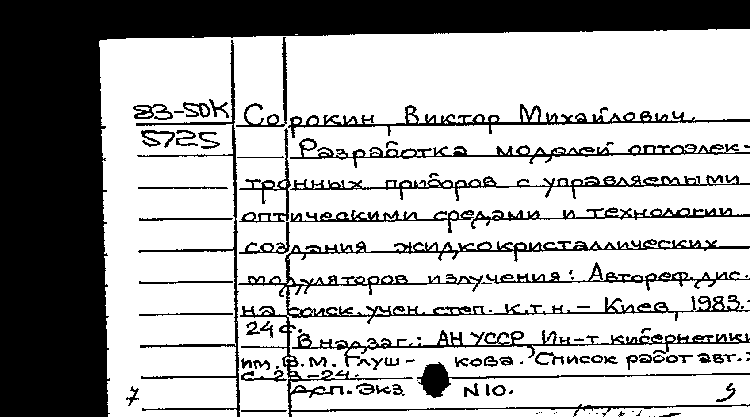 83-50К Сорокин, Виктор Михайлович.
5725
Разработка моделей оптоэлек-
тронных приборов с управляемыми
оптическими средами и технологии
создания жидкокристаллических
модуляторов излучения: Автореф. дис.
на соиск. учен. степ. к.т.н. – Киев, 1983. –
24 с.
В надзаг.: АН УССР, Ин-т кибернетики
им. В.М. Глуш- кова. Список работ авт.:
с. 23-24.
Дсп. Экз N 10.